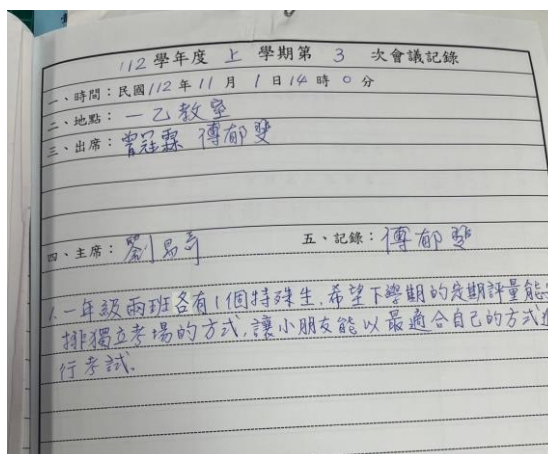 112 學年度 上 學期第 3 次會議記錄
一、時間：民國 112 年 11 月 1 日 14 時 0 分
二、地點：一乙教室
三、出席：曾冠霖 傅郁雯
四、主席：劉易奇 五、記錄：傅郁雯
1. 一年級兩班各有1個特殊生，希望下學期的定期評量能
排獨立考場的方式，讓小朋友能以最適合自己的方式進
行考試。